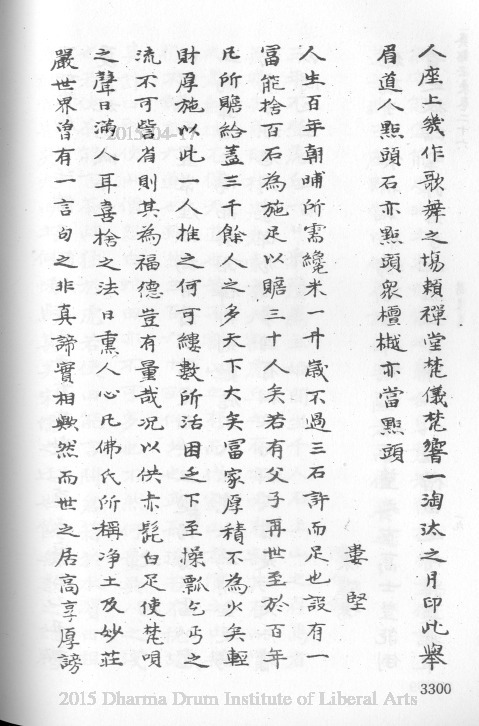 人座上幾作歌舞之場頼禪堂梵儀梵響一淘汰之月印此舉
眉道人㸃頭石亦㸃頭衆檀樾亦當㸃頭
婁堅
人生百年朝晡所需纔米一升歲不過三石許而足也設有一
冨能捨百石為施足以贍三十人矣若有父子再世至於百年
凡所贍給葢三千餘人之多天下大矣冨家厚積不為少矣輕
財厚施以此一人推之何可縷數所活困乏下至操瓢乞丐之
流不可訾省則其為福德豈有量哉况以供赤髭白足使梵唄
之聲日滿人耳喜捨之法日熏人心凡佛氏所稱净土及妙莊
嚴世界曾有一言句之非真諦實相歟然而世之居高享厚謗
3300
2015-04-17
2015 Dharma Drum Institute of Liberal Arts